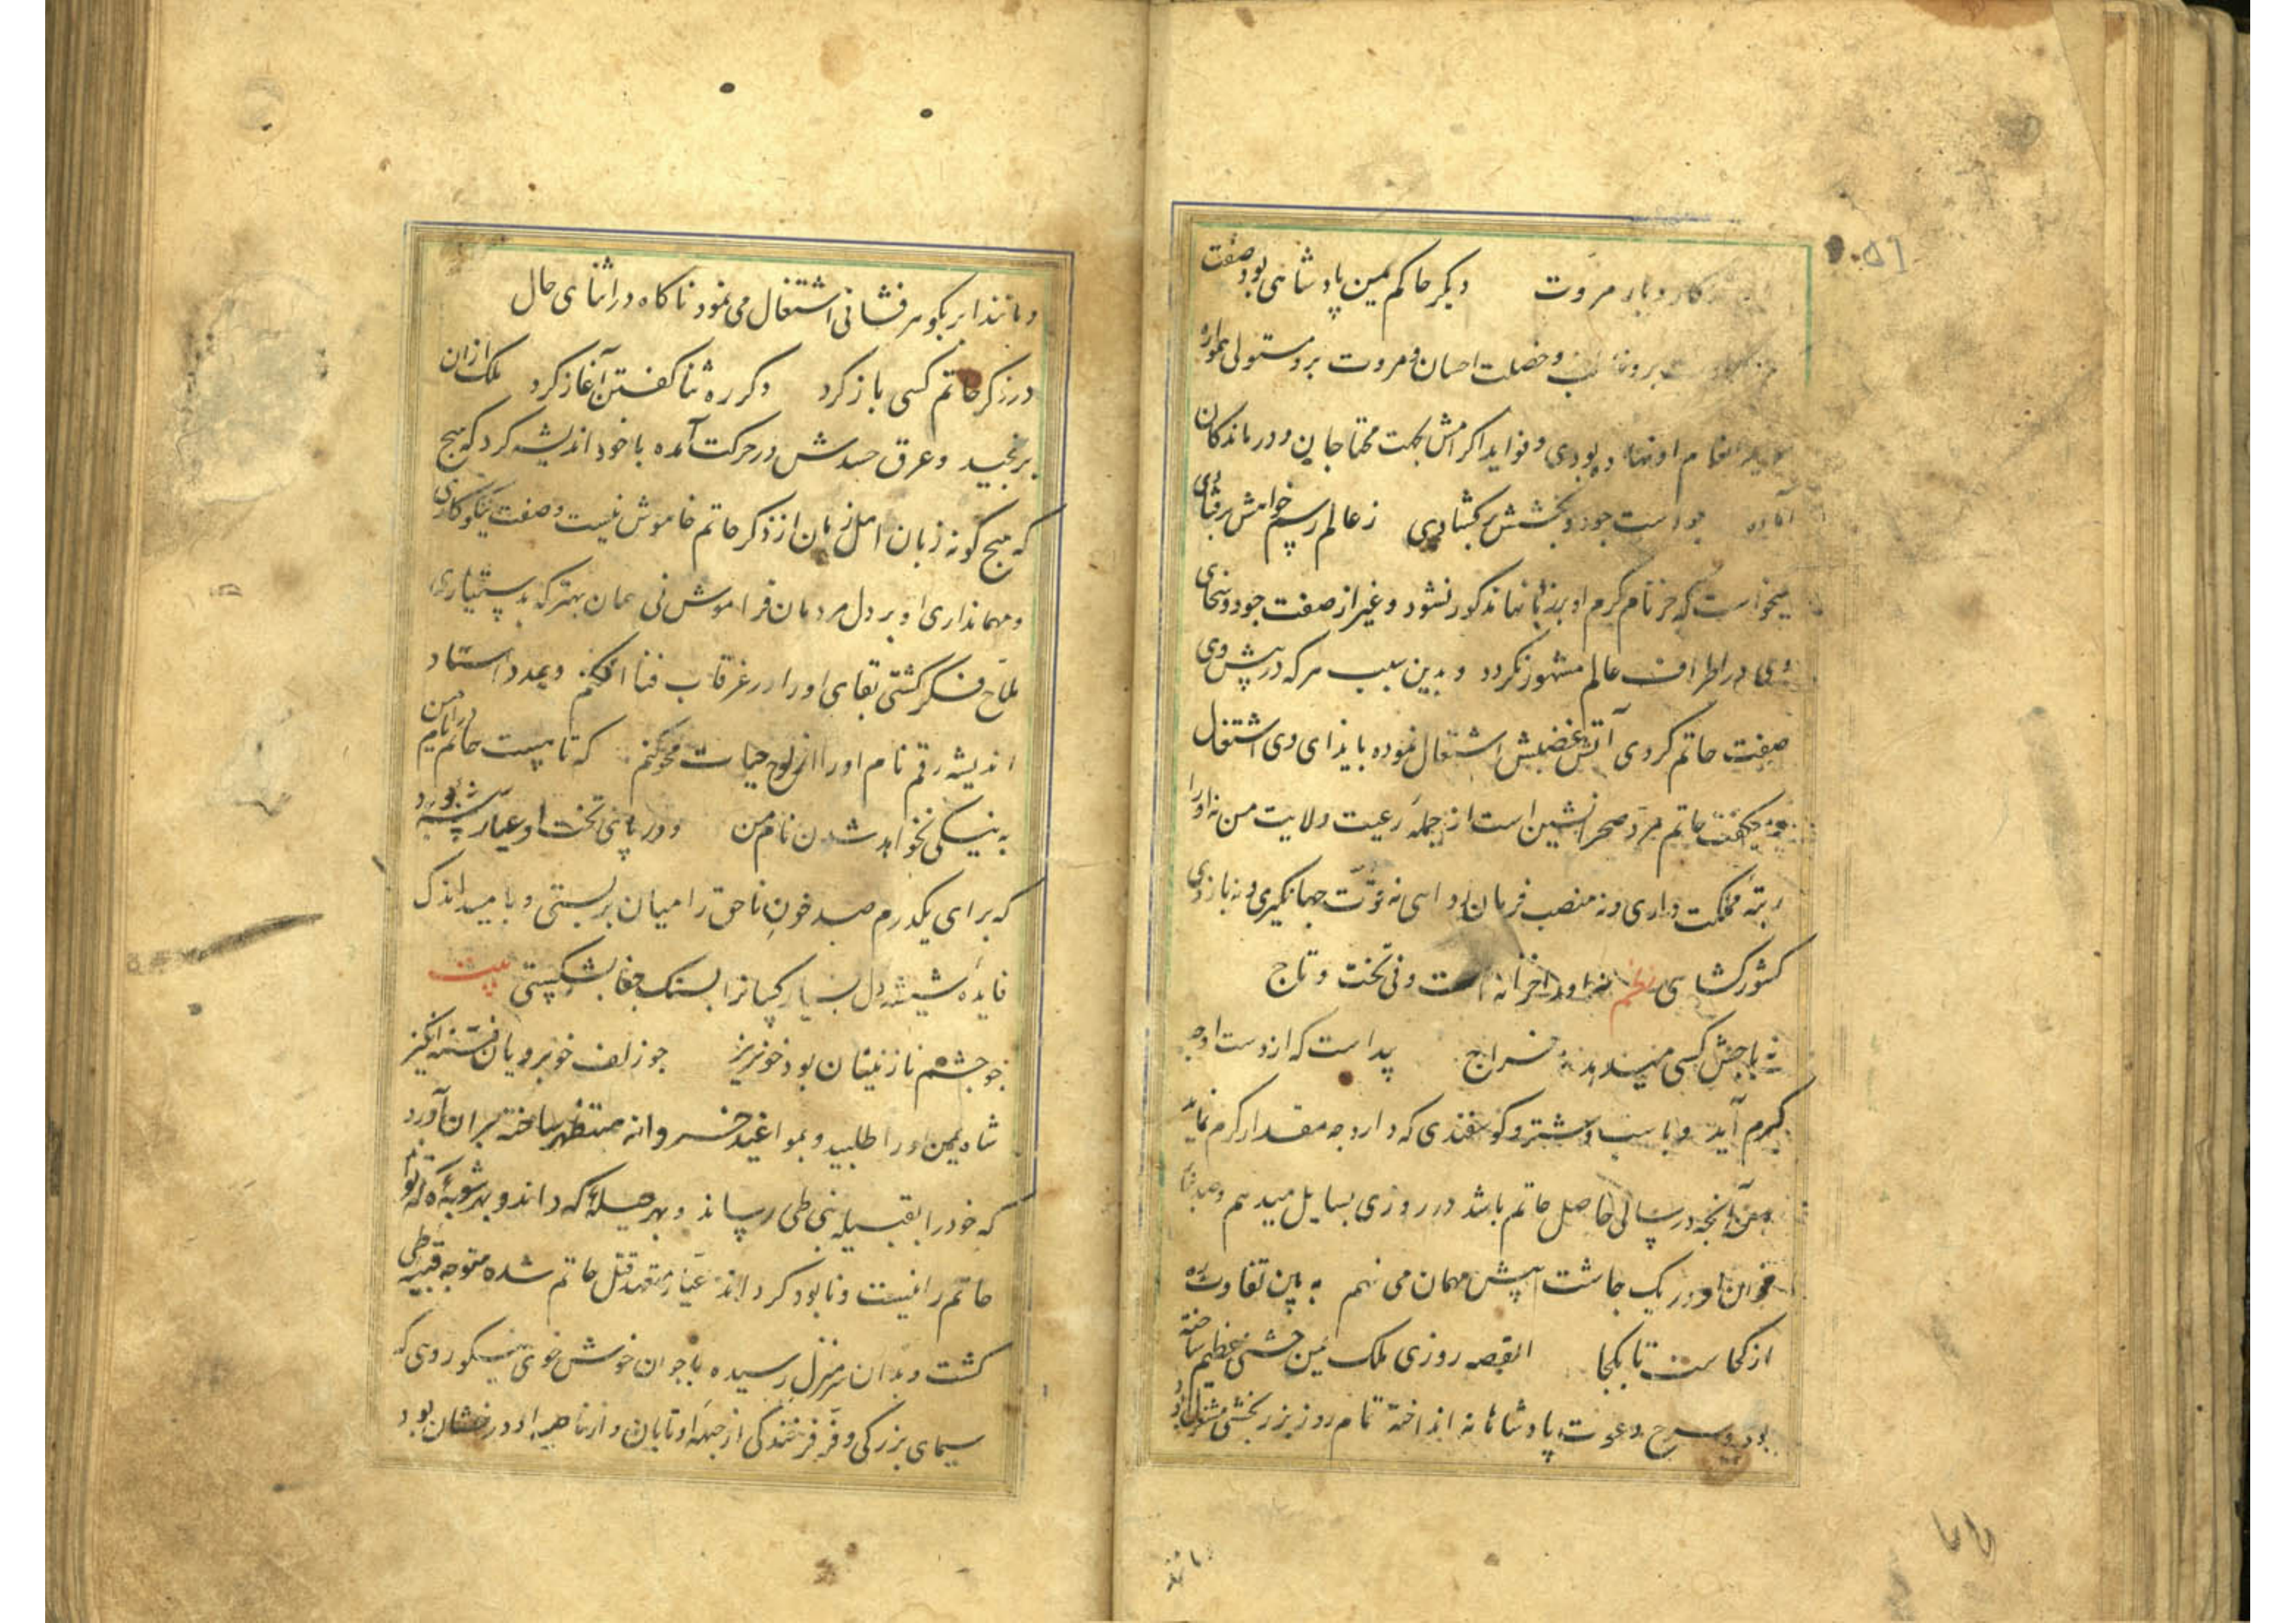 کار و بار مروت دیکر حاکم یمین پادشاهی بود صفت
و خصلت احسان و مروت برو مستولی همواره
انعام او نهاده بودی و فواید اکرامش بجهت محتاجان و درماندکان
آماده جود و بخشش برکشادی ز عالم رسم خواهش برفتادی
میخواست که جز نام کرم او بر زبانها مذکور نشود و غیر از صفت جود و سخای
وی در اطراف عالم مشهور نکردد و بدین سبب هر که در پیش وی
صفت حاتم کردی آتش غضبش اشتعال نموده بایذای وی اشتغال
حاتم مرد صحرانشین است از جمله رعیت ولایت من نه او را
رتبه مملکت داری و نه منصب فرمان روایی نه قوت جهانکیری و نه بازوی
کشورکشایی نظم نه او را خزانه است و نی تخت و تاج
نه باجش کسی میدهد نه خراج پیداست که از دست او چه
کرم آید و باسب و شتر و کوسفندی که دارد چه مقدار کرم نماید
من آنچه در سالی حاصل حاتم باشد در روزی بسایل میدهم
خوان او در یک چاشت پیش مهمان می نهم به بین تفاوت ره
از کجاست تا بکجا القصه روزی ملک یمن جشنی عظیم ساخته
بود و دعوت پادشاهانه انداخته تمام روز بزربخشی مشغول بود
مانند
و مانند ابر بکوهرفشانی اشتغال می نمود ناکاه در اثنای حال
در ذکر حاتم کسی باز کرد دکر ره ثنا کفتن آغاز کرد ملک ازان
برنجید و عرق حسدش در حرکت آمده با خود اندیشه کرد که هیچ
که هیچ کونه زبان اهل زمان از ذکر حاتم خاموش نیست و صفت نیکوکاری
و مهمانداری او بر دل مردمان فراموش نی همان بهتر که بدستیاری
ملاح فکر کشتی بقای او را در غرقاب فنا افکنم و بمدد استاد
اندیشه رقم نام او را از لوح حیات محو کنم که تا هست حاتم در ایام من
به نیکی نخواهد شدن نام من و در پای تخت او عیار پیشه بود
که برای یکدرم صد خون ناحق را میان بربستی و بامید اندک
فایده شیشه دل بسیار کسانرا بسنک جفا بشکستی بیت
چو چشم نازنینان بود خونریز چو زلف خوبرویان فتنه انکیز
شاه یمن او را طلبید و بمواعید خسروانه مستظهر ساخته بران آورد
که خود را بقبیله بنی طی رساند و بهر حیله که داند و بهر شوبه که تواند
حاتم را نیست و نابود کرداند عیار متعهد قتل حاتم شده متوجه قبیله طی
کشت و بدان سرمنزل رسیده با جوان خوش خوی نیکو روی که
سیمای بزرکی و فر فرخندکی از جبهه او تابان و از ناصیه او درخشان بود